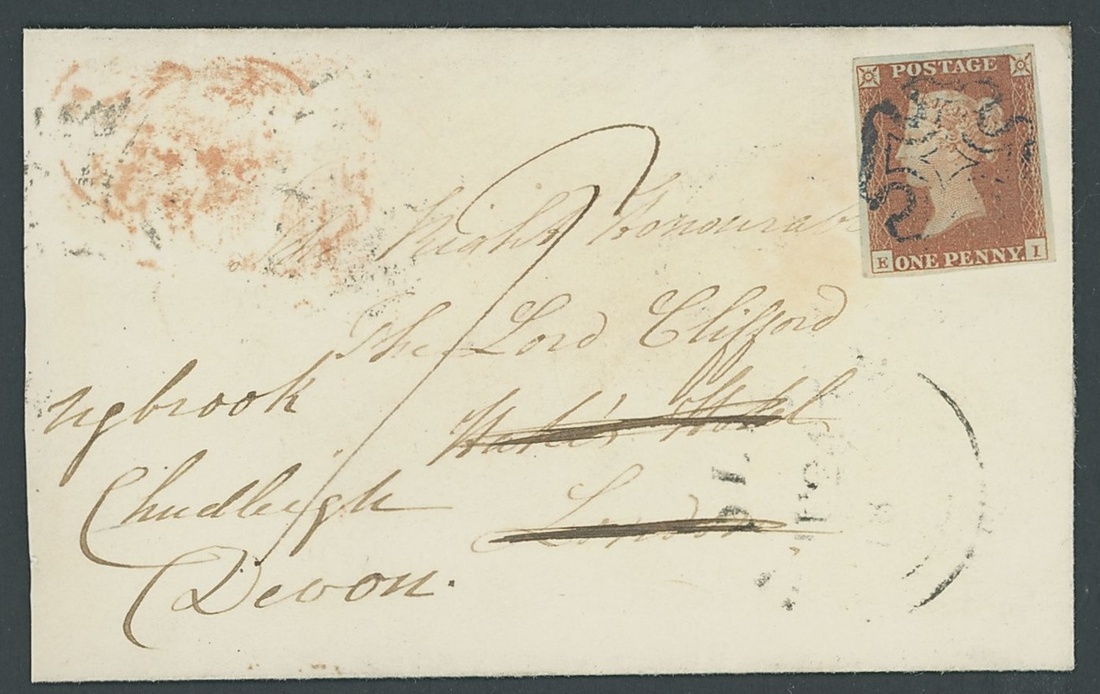 POSTAGE
E ONE PENNY I
The Right Honourable
The Lord Clifford
Hotel
London
Ugbrook
Chudleigh
Devon.